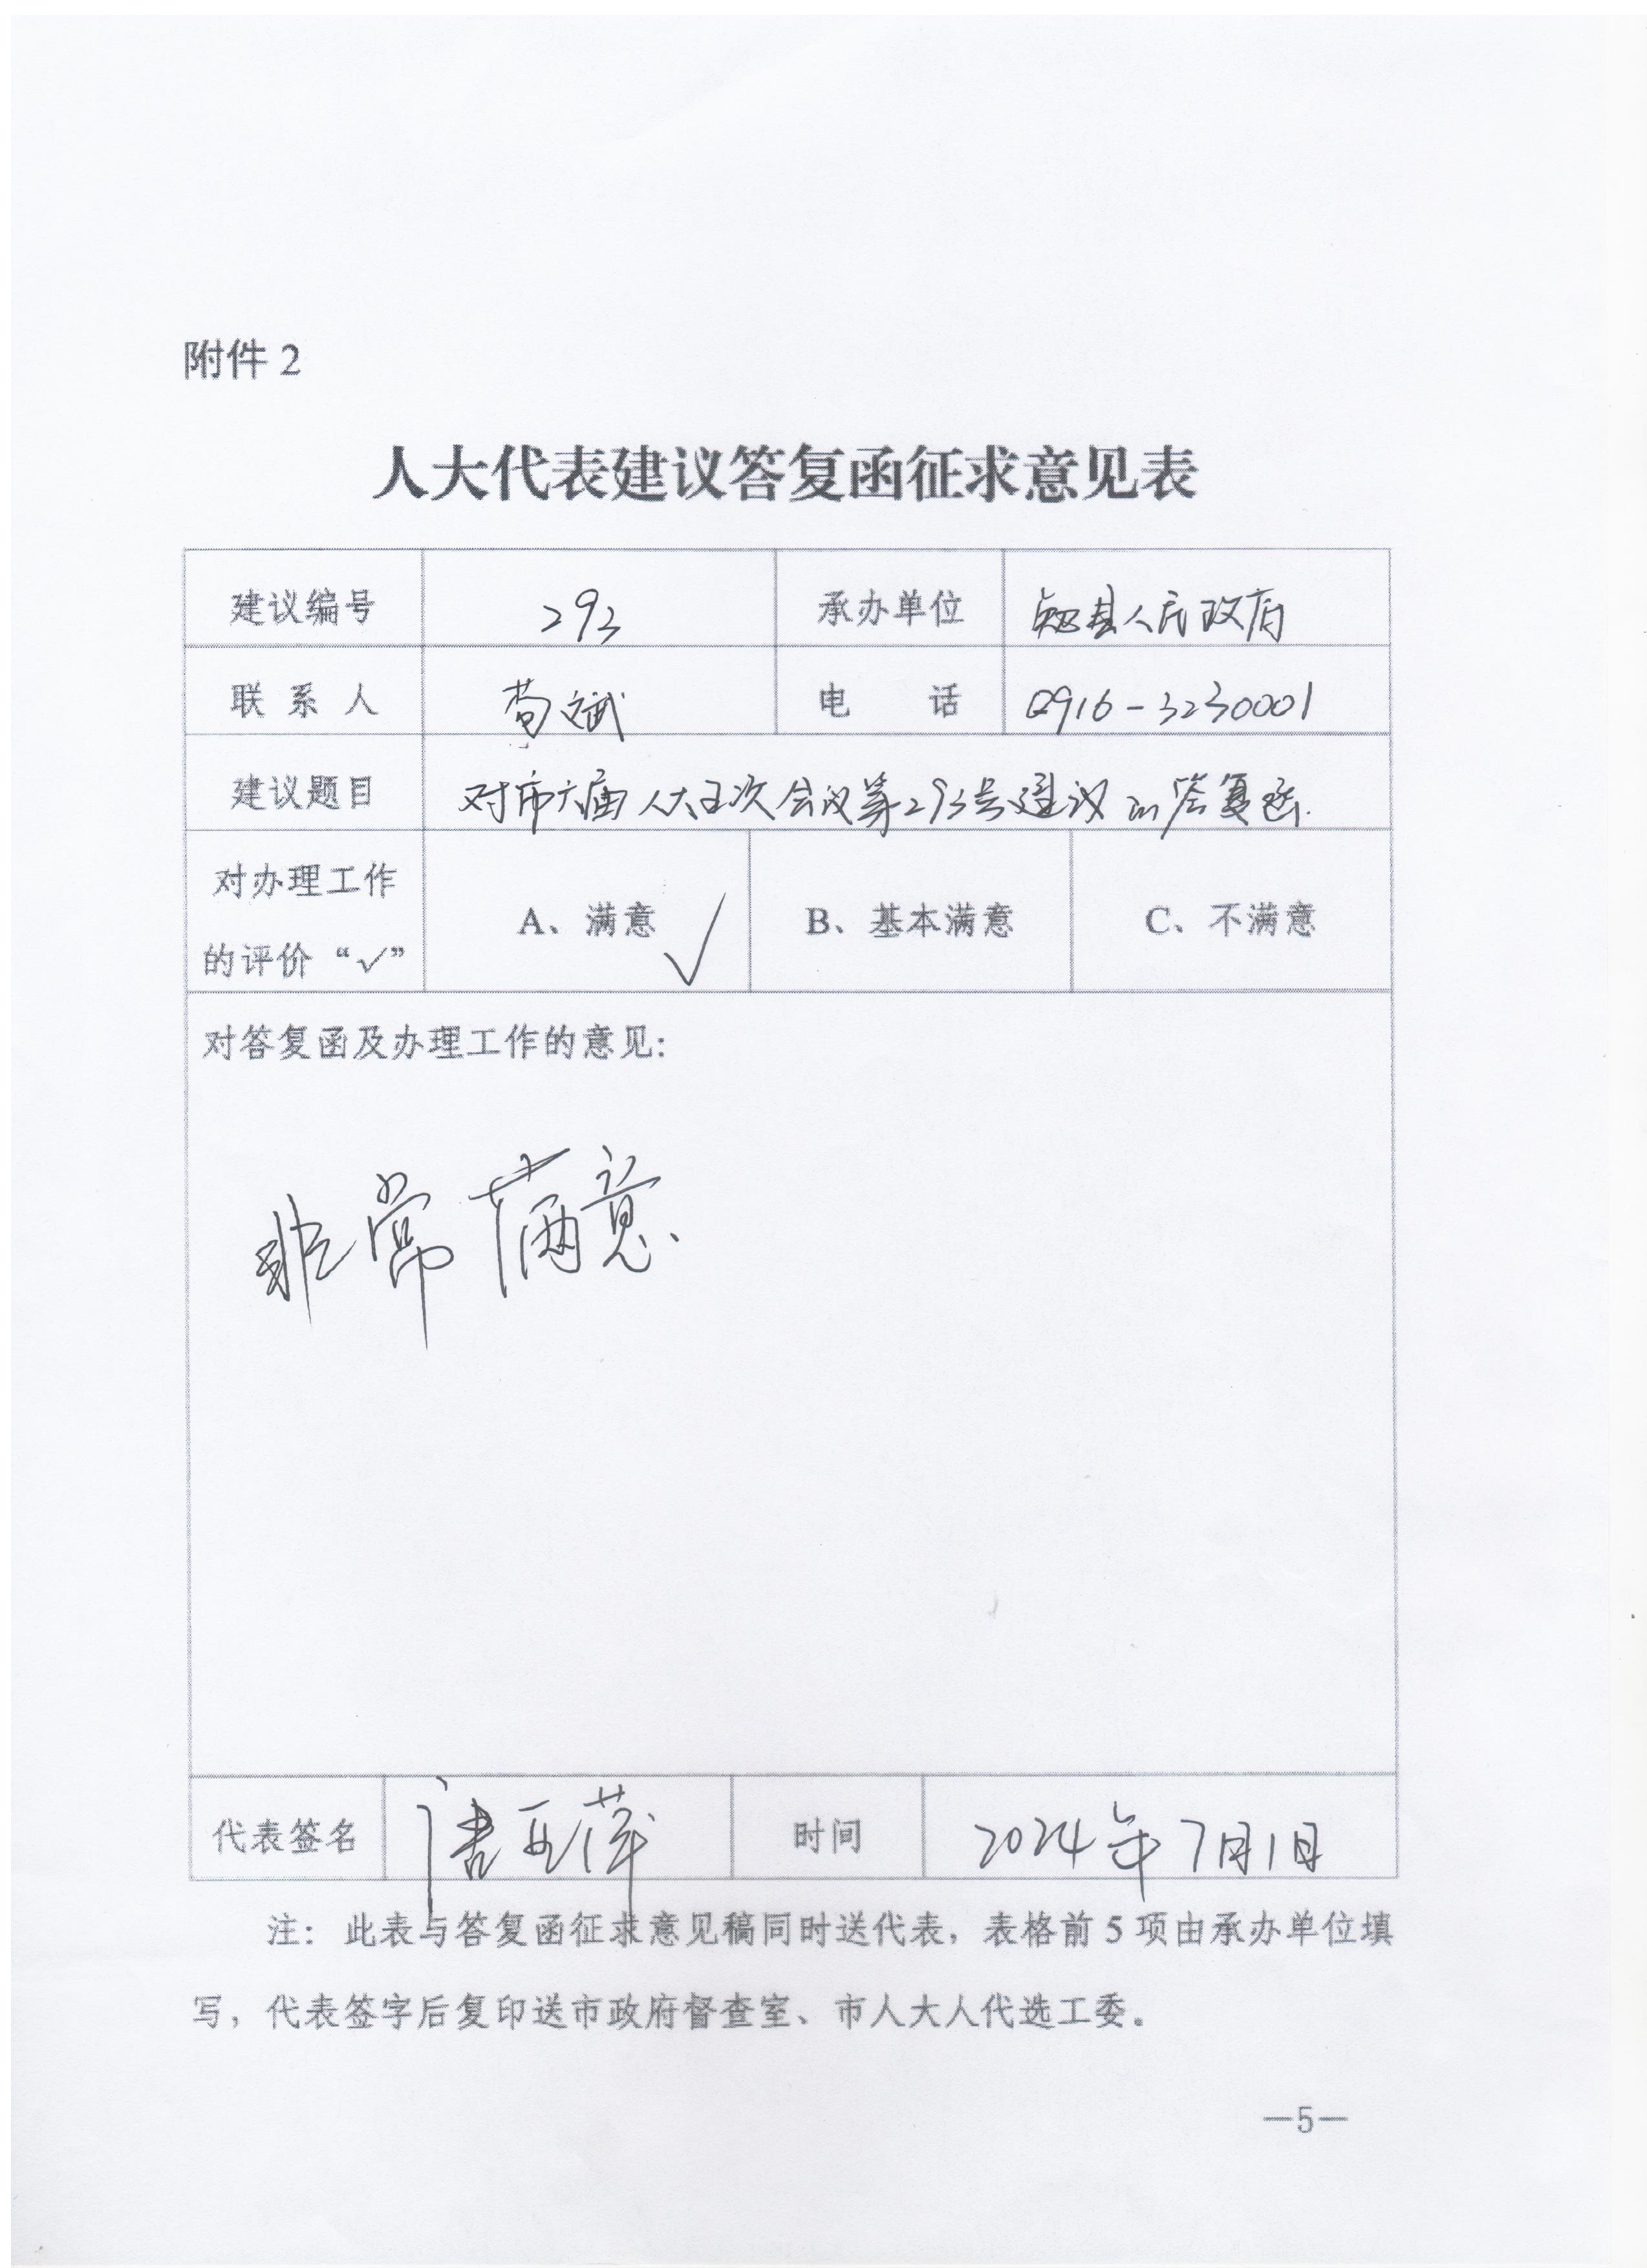 附件 2
人大代表建议答复函征求意见表
建议编号 293 承办单位 勉县人民政府
联 系 人 苟斌 电 话 0916-3230001
建议题目 对市六届人大五次会议第293号建议的答复函.
对办理工作
的评价“✓” A、满意 ✓ B、基本满意 C、不满意
对答复函及办理工作的意见:
非常满意.
代表签名 唐亚萍 时间 2024年7月1日
注: 此表与答复函征求意见稿同时送代表, 表格前 5 项由承办单位填
写, 代表签字后复印送市政府督查室、市人大人代选工委。
—5—